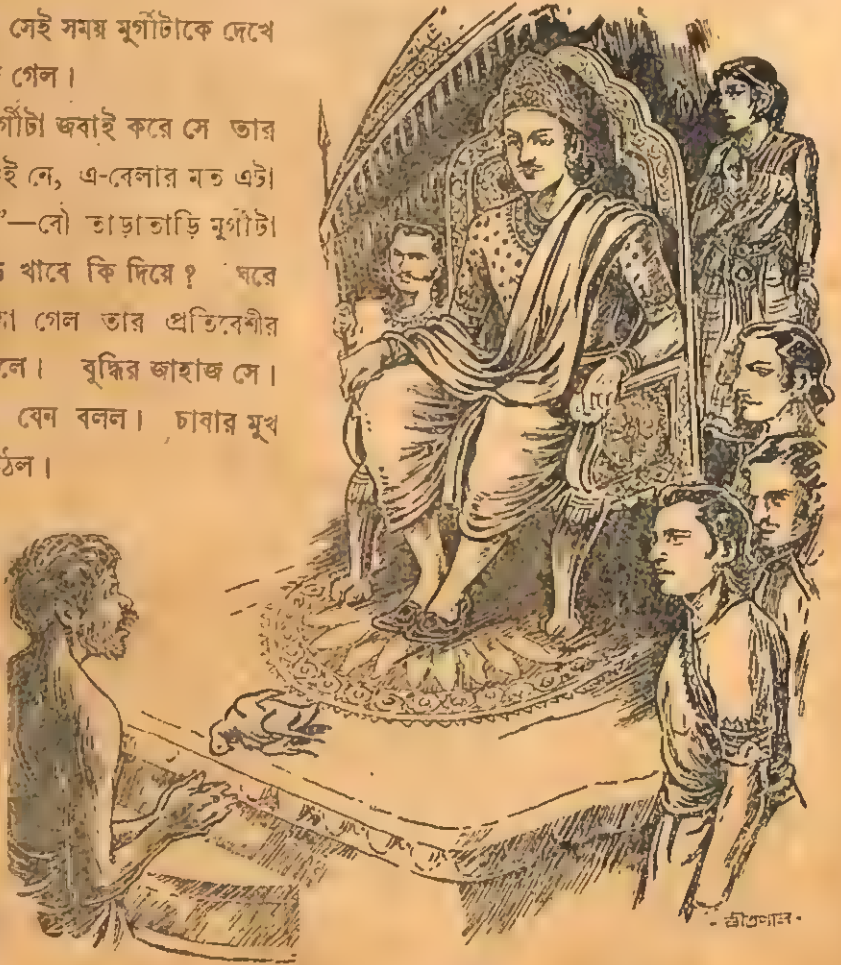 সেই সময় মুর্গীটাকে দেখে
গেল।
র্গীটা জবাই করে সে তার
ই নে, এ-বেলার মত এটা
”—বৌ তাড়াতাড়ি মুর্গীটা
খাবে কি দিয়ে? ঘরে
গেল তার প্রতিবেশীর
লে। বুদ্ধির জাহাজ সে।
যেন বলল। চাষার মুখ
ঠল।